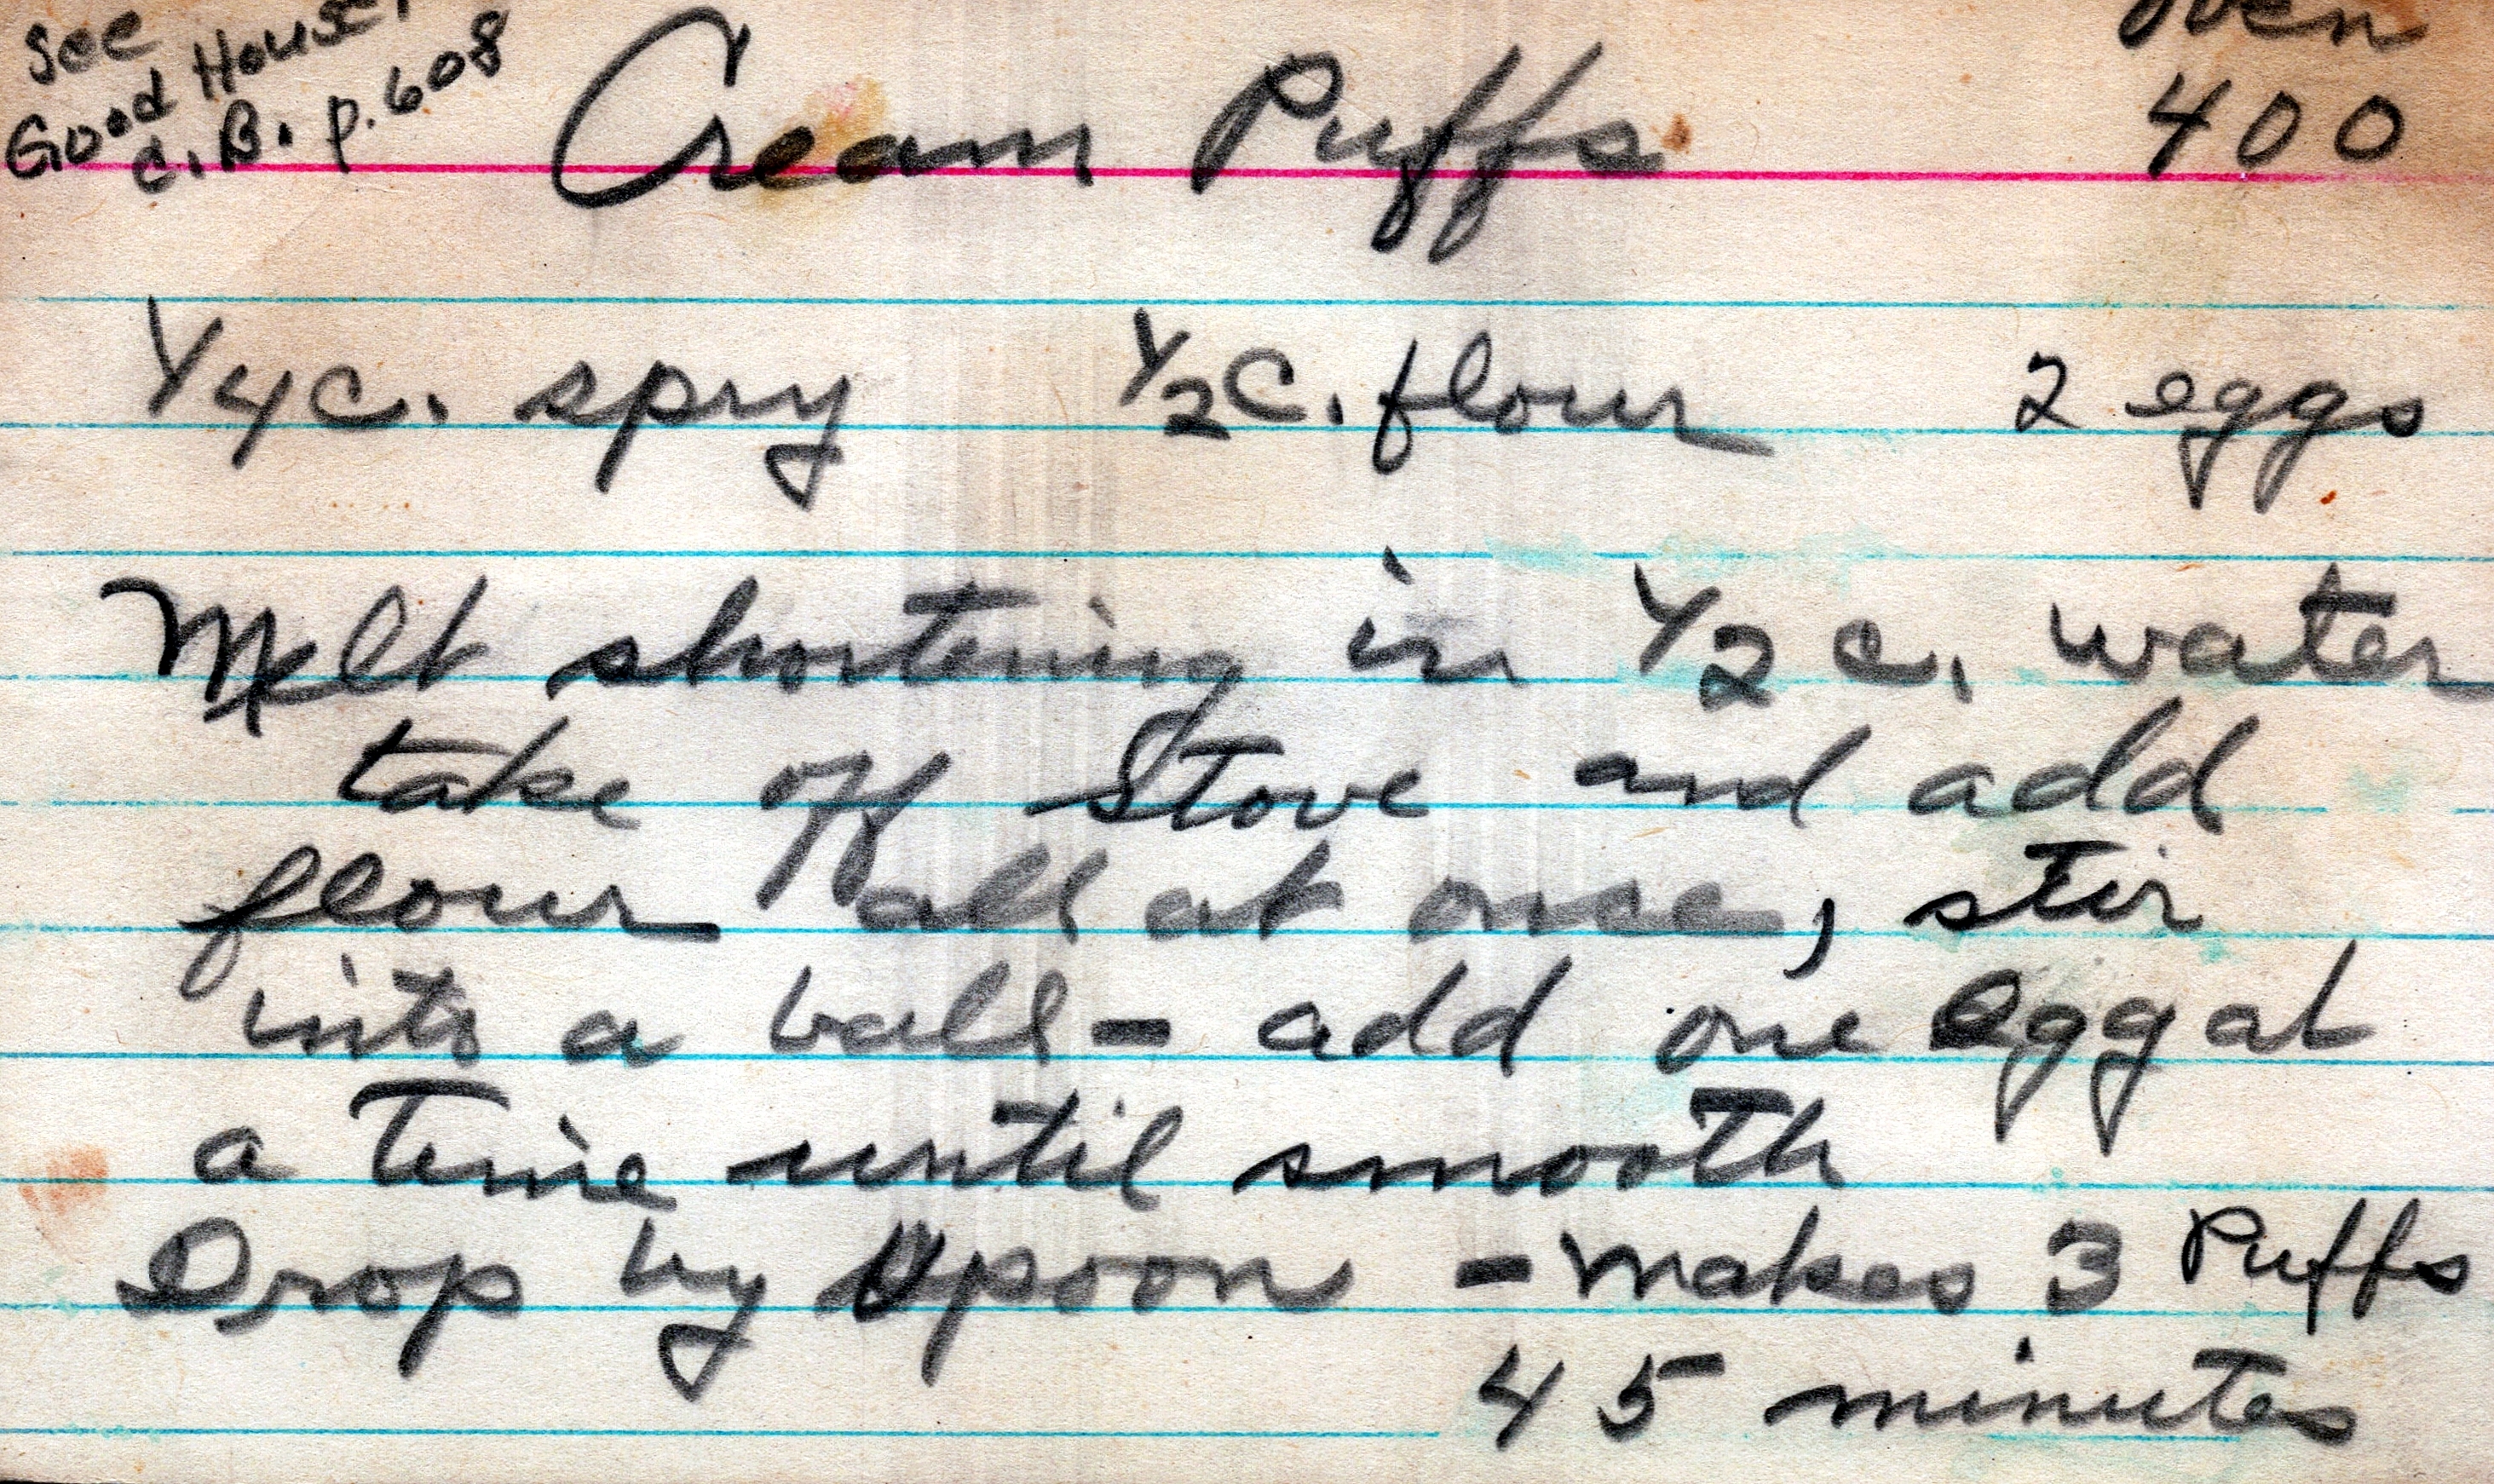 See
Good House.
C. B. p. 608
Cream Puffs
Oven
400
1/4 c. spry 1/2 c. flour 2 eggs
Melt shortening in 1/2 c. water
take off stove and add
flour all at once, stir
into a ball - add one egg at
a time until smooth
Drop by spoon - makes 3 Puffs
45 minutes